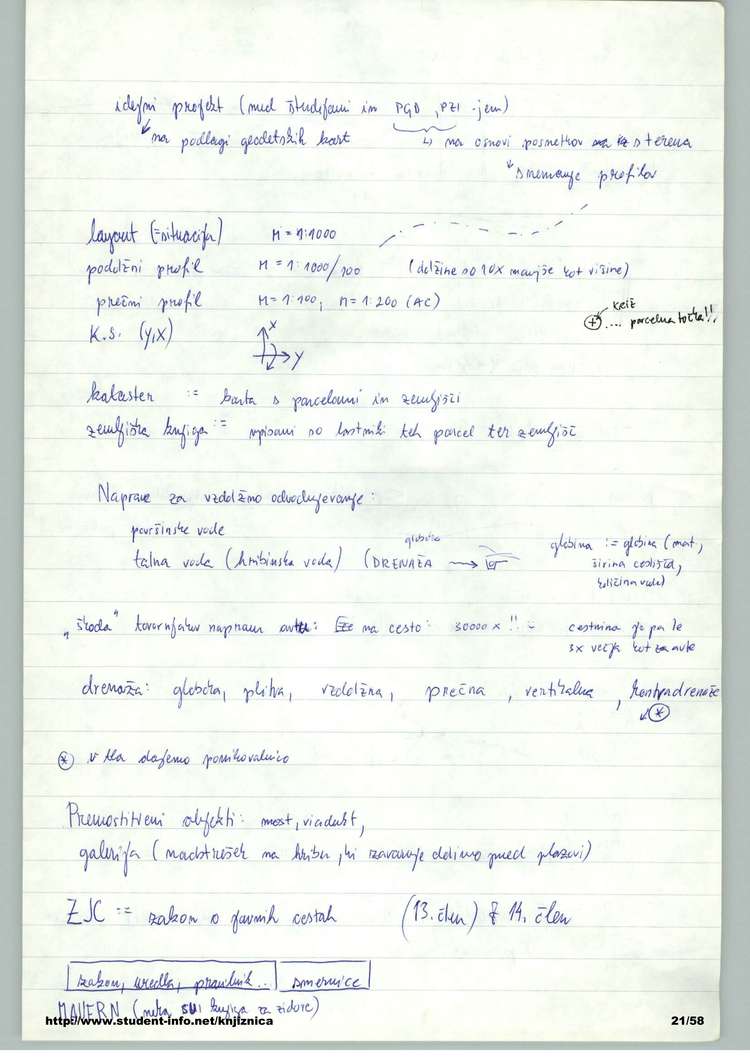 idejni projekt (med študijami in PGD, PZI-jem)
na podlagi geodetskih kart
↳ na osnovi posnetkov iz terena
snemanje profilov
layout (=situacija) M = 1:1000
podolžni profil M = 1:1000/100 (dolžine so 10x manjše kot višine)
prečni profil M = 1:100; M = 1:200 (AC)
križ
K.S. (y,x) x y ... parcelna točka!!
kataster := karta s parcelami in zemljišči
zemljiška knjiga := vpisani so lastniki teh parcel ter zemljišč
Naprave za vzdolžno odvodnjevanje:
površinske vode
talna voda (hribinska voda) (DRENAŽA globoka
globina := globina (mat,
širina cestišča,
količina vode)
"škoda" tovornjakov napram avtu: na cesto: 30000x!! - cestnina je pa le
3x večja kot za avte
drenaža: globoka, plitva, vzdolžna, prečna, vertikalna, kontradrenaže
* v tla dajemo ponikovalnico
Premostitveni objekti: most, viadukt,
galerija (nadstrešek na hribu, ki zavaruje dolino pred plazovi)
ZJC := zakon o javnih cestah (13. člen) 14. člen
zakon, uredba, pravilnik.. smernice
MAUERN (neka knjiga za zidove)
http://www.student-info.net/knjiznica 21/58